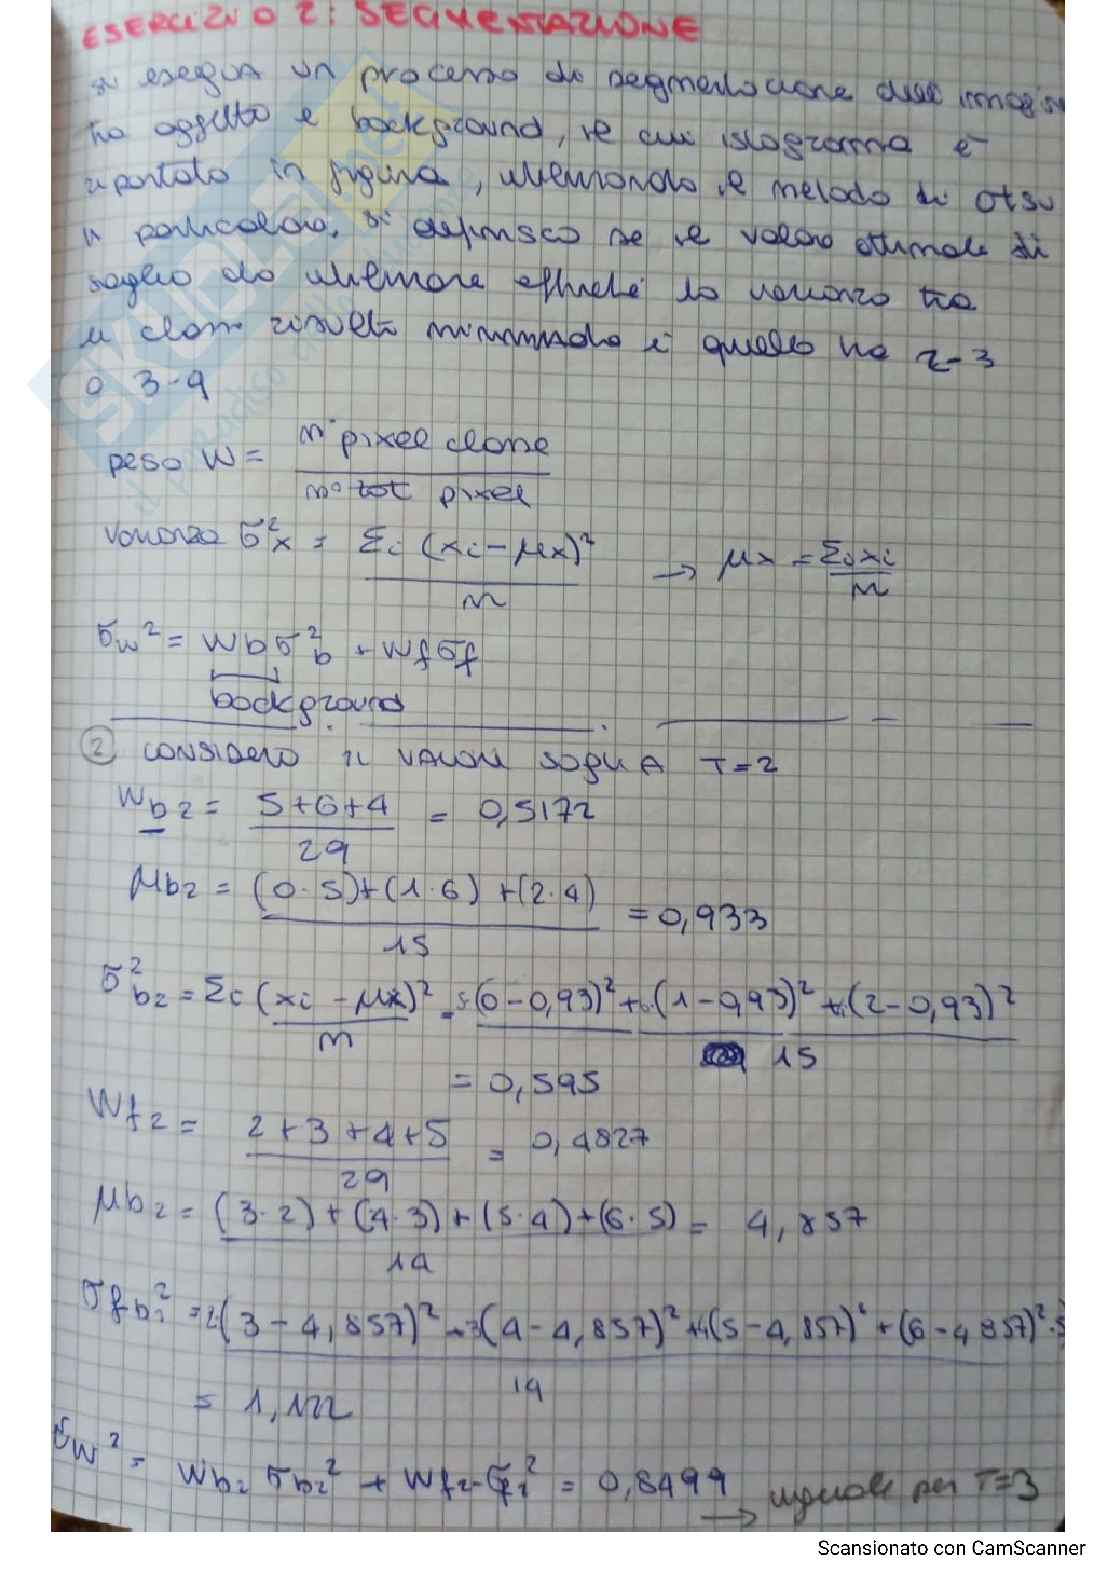 ESERCIZIO 2: SEGMENTAZIONE
si esegua un processo di segmentazione dell'immagine
tra oggetto e background, il cui istogramma è
riportato in figura, utilizzando il metodo di Otsu
in particolare, si definisca se il valore ottimale di
soglia da utilizzare affinché la varianza tra
le classi risulti minimizzata è quello tra 2-3
o 3-4
peso W = n° pixel classe / n° tot pixel
varianza σ²x = Σi (xi - μx)² / n → μx = Σi xi / n
σw² = Wb σ²b + Wf σf
background
② CONSIDERO IL VALORE SOGLIA T=2
Wb2 = 5+6+4 / 29 = 0,5172
μb2 = (0·5)+(1·6)+(2·4) / 15 = 0,933
σ²b2 = Σi (xi - μx)² / n = 5(0-0,93)² + 6(1-0,93)² + 4(2-0,93)² / 15
= 0,595
Wf2 = 2+3+4+5 / 29 = 0,4827
μb2 = (3·2)+(4·3)+(5·4)+(6·5) / 14 = 4,857
σfb2² = 2(3-4,857)² + 3(4-4,857)² + 4(5-4,857)² + (6-4,857)²·5 / 14
= 1,122
σw² = Wb2 σb2² + Wf2·σf2² = 0,8499
→ uguale per T=3
Scansionato con CamScanner